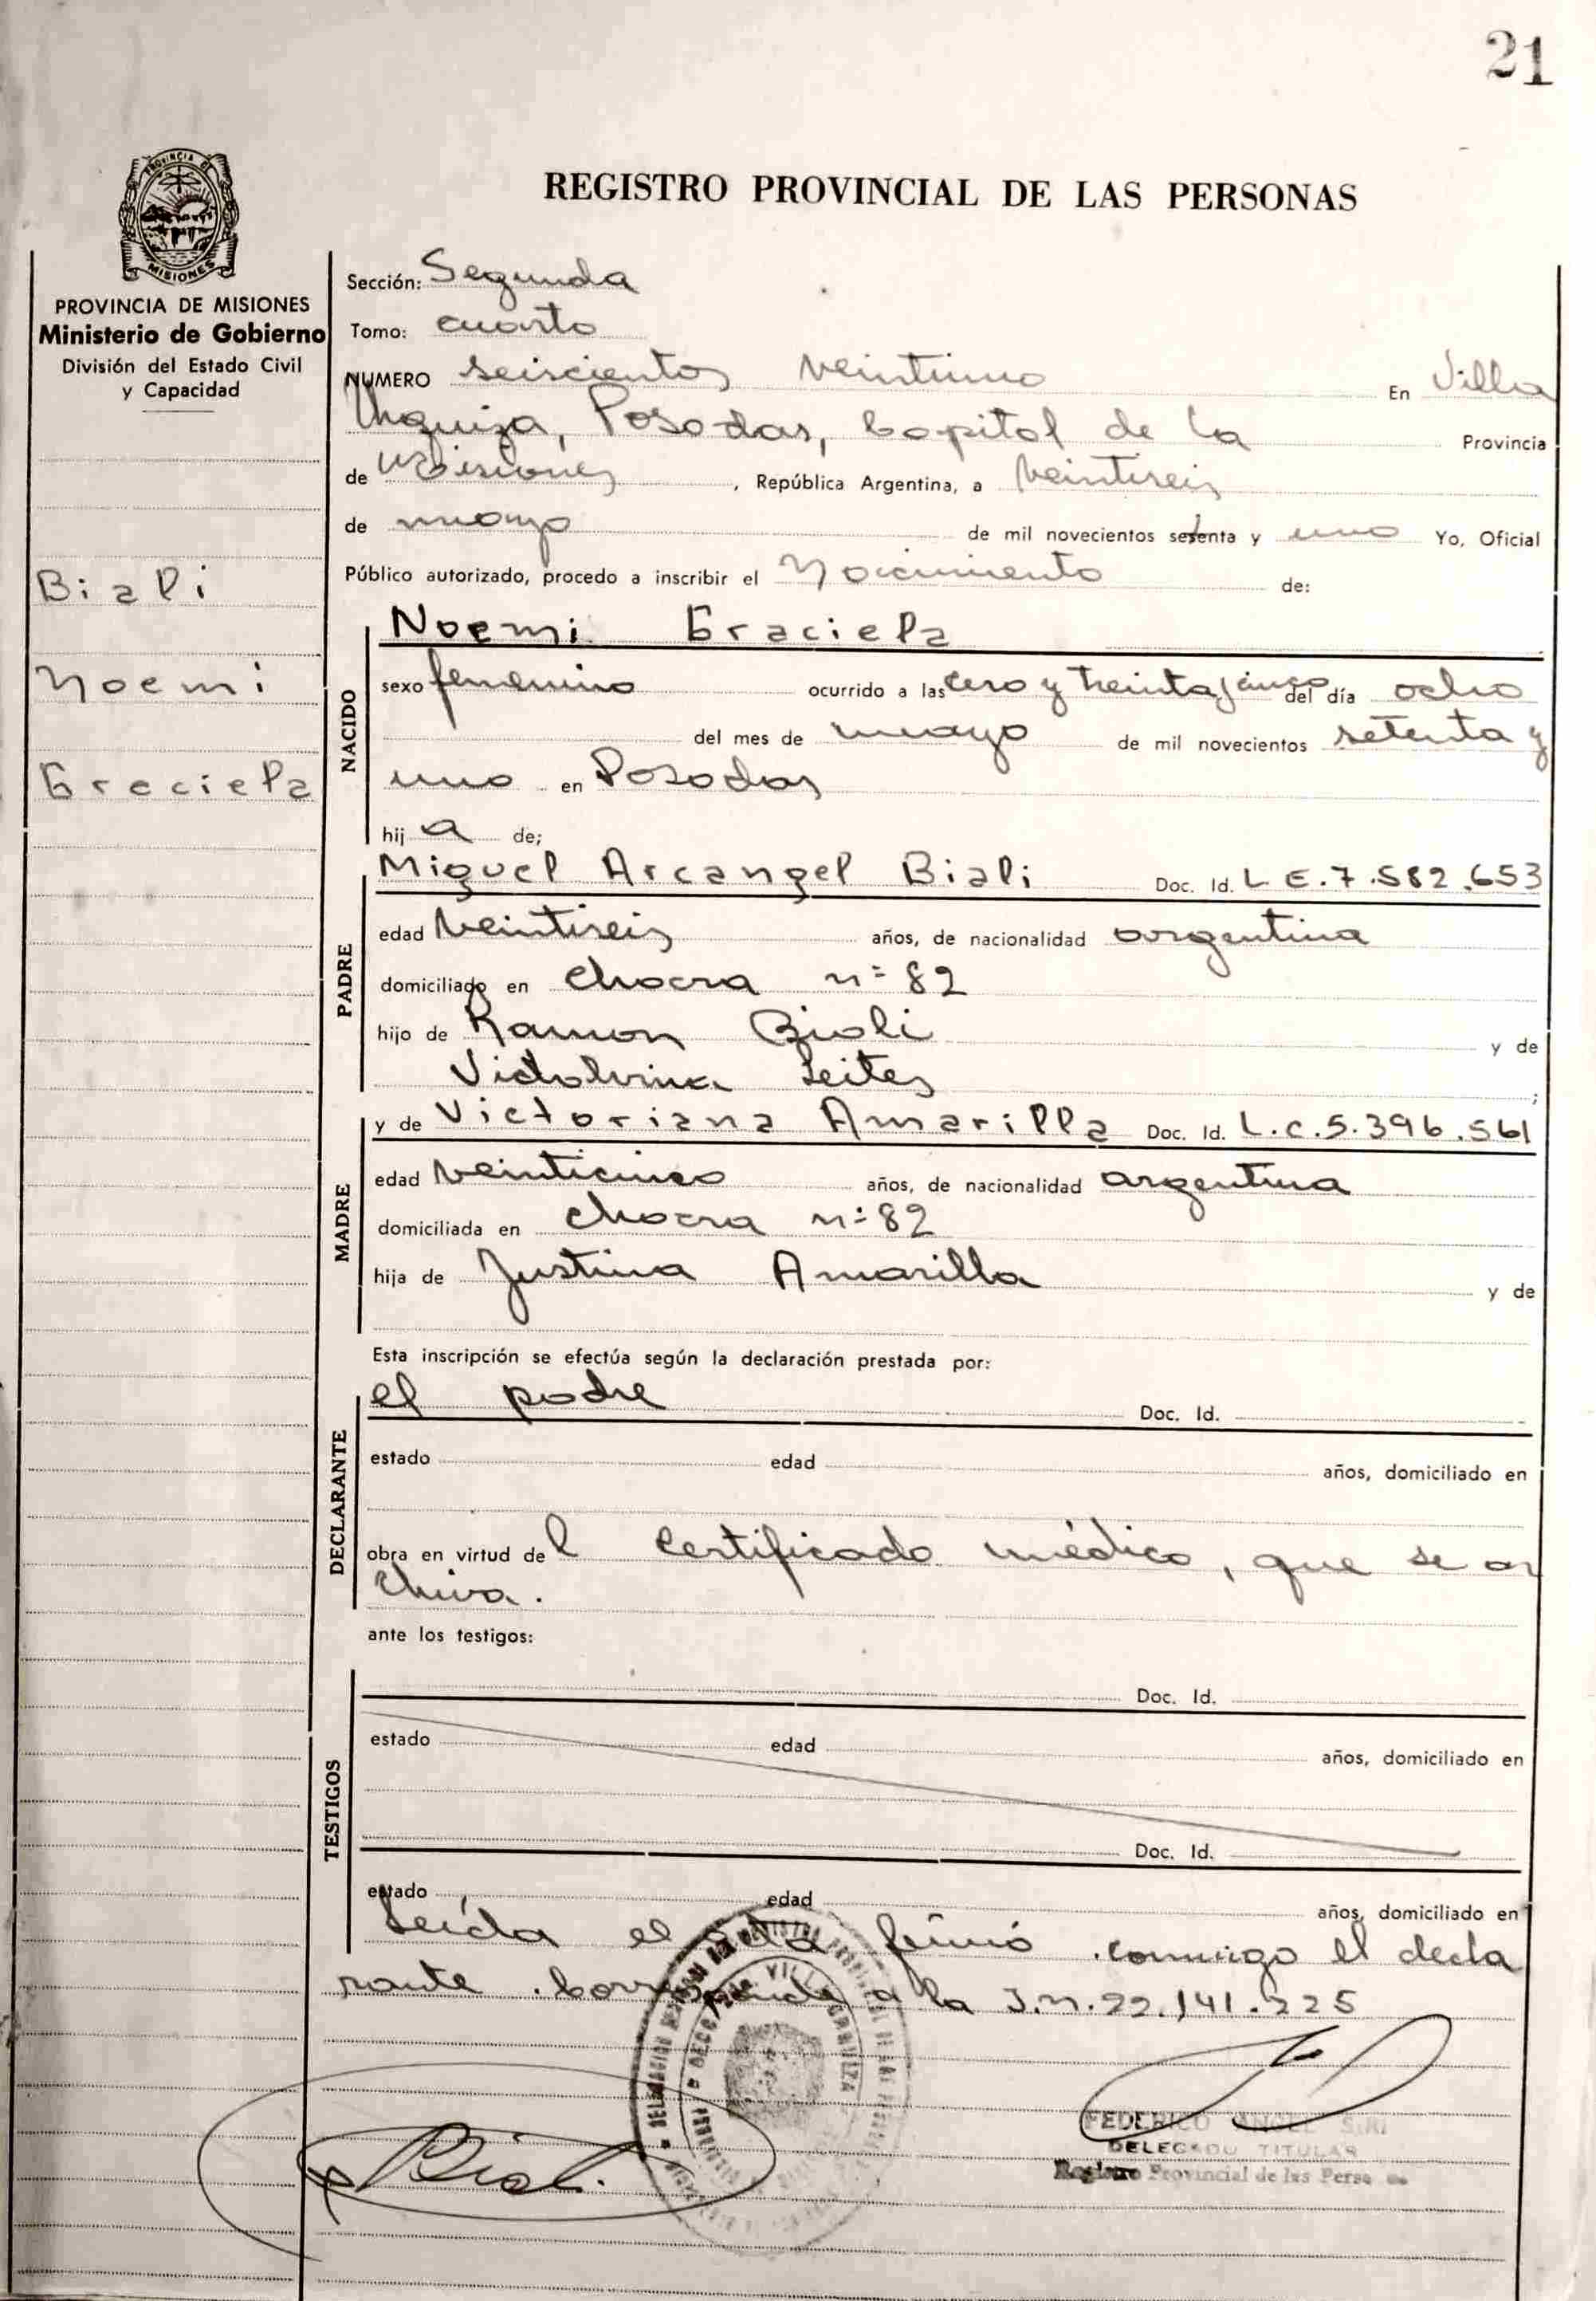 21
PROVINCIA DE
MISIONES
REGISTRO PROVINCIAL DE LAS PERSONAS
PROVINCIA DE MISIONES
Ministerio de Gobierno
División del Estado Civil
y Capacidad
Biali
Noemi
Greciela
Sección: Segunda
Tomo: cuarto
NUMERO seiscientos veintiuno En Villa
Urquiza, Posadas, Capital de la Provincia
de Misiones, República Argentina, a veintiseis
de mayo de mil novecientos setenta y uno Yo, Oficial
Público autorizado, procedo a inscribir el Nacimiento de:
NACIDO
Noemi Graciela
sexo femenino ocurrido a las cero y treinta y cinco del día ocho
del mes de mayo de mil novecientos setenta y
uno en Posadas
hij a de;
PADRE
Miguel Arcangel Biali Doc. Id. L E. 7.582.653
edad veintiseis años, de nacionalidad argentina
domiciliado en chacra n° 82
hijo de Ramon Biali y de
Leites ;
MADRE
y de Victoriana Amarilla Doc. Id. L.C.5.396.561
edad veinticinco años, de nacionalidad argentina
domiciliada en chacra n° 82
hija de Justina Amarilla y de
Esta inscripción se efectúa según la declaración prestada por:
DECLARANTE
el padre Doc. Id.
estado edad años, domiciliado en
obra en virtud de l certificado médico, que se ar
chiva.
ante los testigos:
TESTIGOS
Doc. Id.
estado edad años, domiciliado en
Doc. Id.
estado edad años, domiciliado en
Leída el acta firmó conmigo el decla
rante. Corresponde a la I.M.22.141.225
VILLA URQUIZA
Biali
FEDERICO ANGEL
DELEGADO TITULAR
Registro Provincial de las Perso